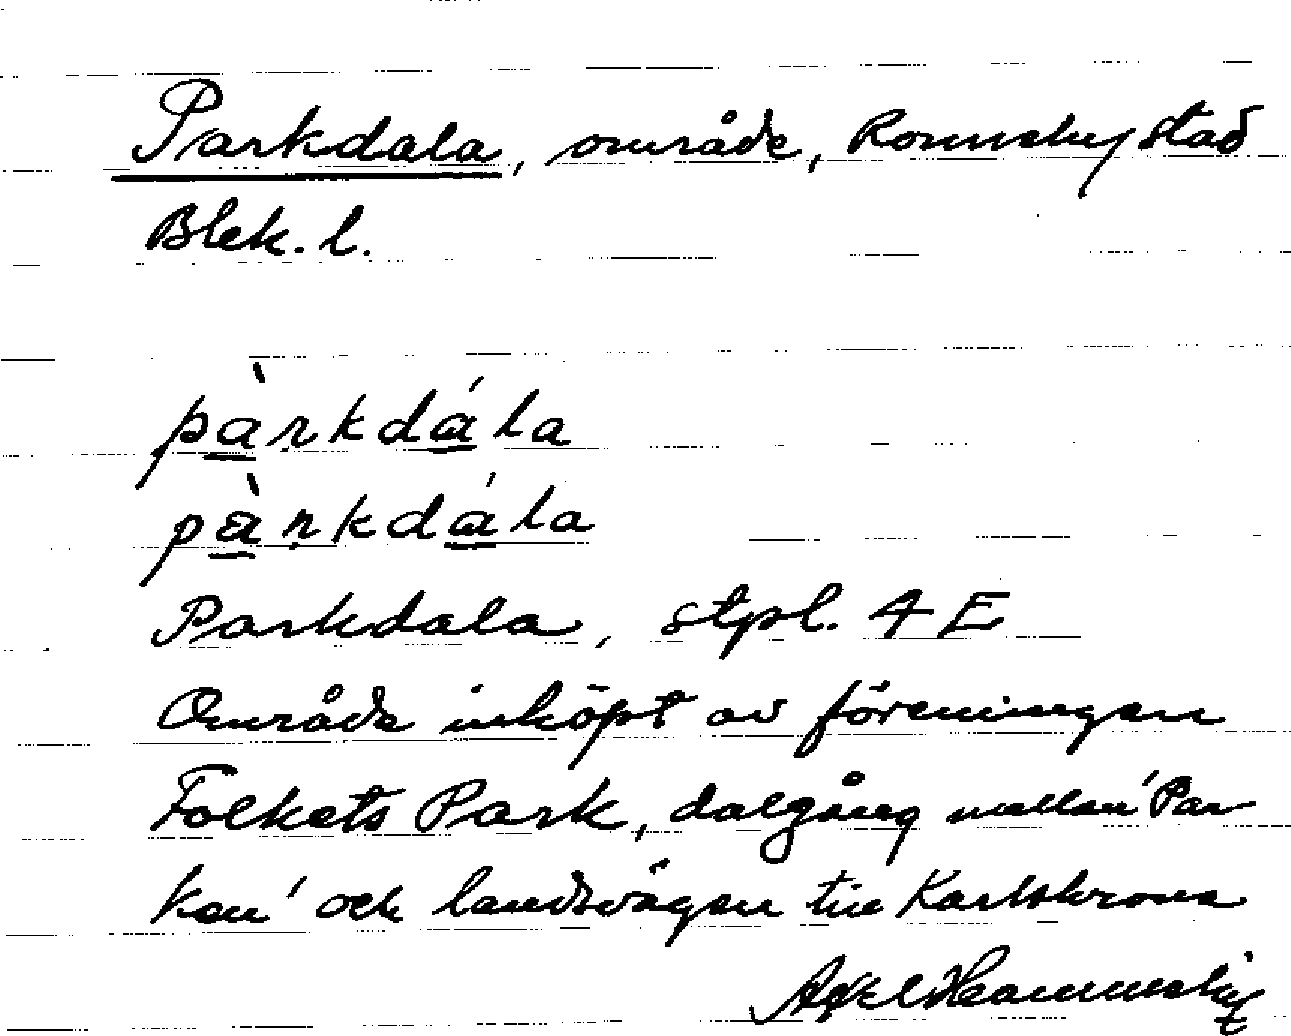 Parkdala, område, Ronneby stad
Blek. l.
pàrkdála
pàrkdála
Parkdala, stpl. 4 E
Område inköpt av föreningen
Folkets Park, dalgång mellan 'Par
ken' och landsvägen till Karlskrona
Axel